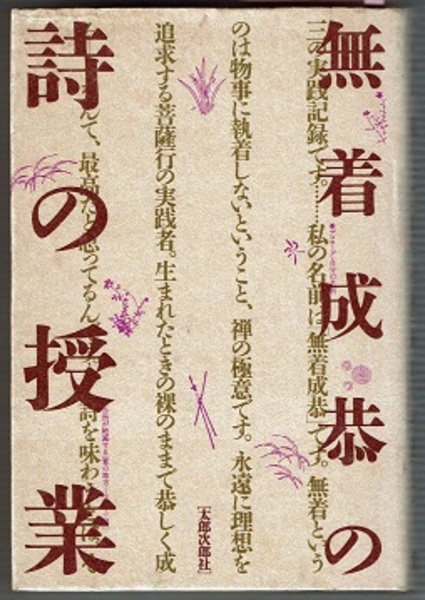 無着成恭の
詩の授業
三の実践記録です。……私の名前は「無着成恭」です。無着という
のは物事に執着しないということ、禅の極意です。永遠に理想を
追求する菩薩行の実践者。生まれたときの裸のままで恭しく成
んて、最高だと思ってるん 詩を味わ
[太郎次郎社]